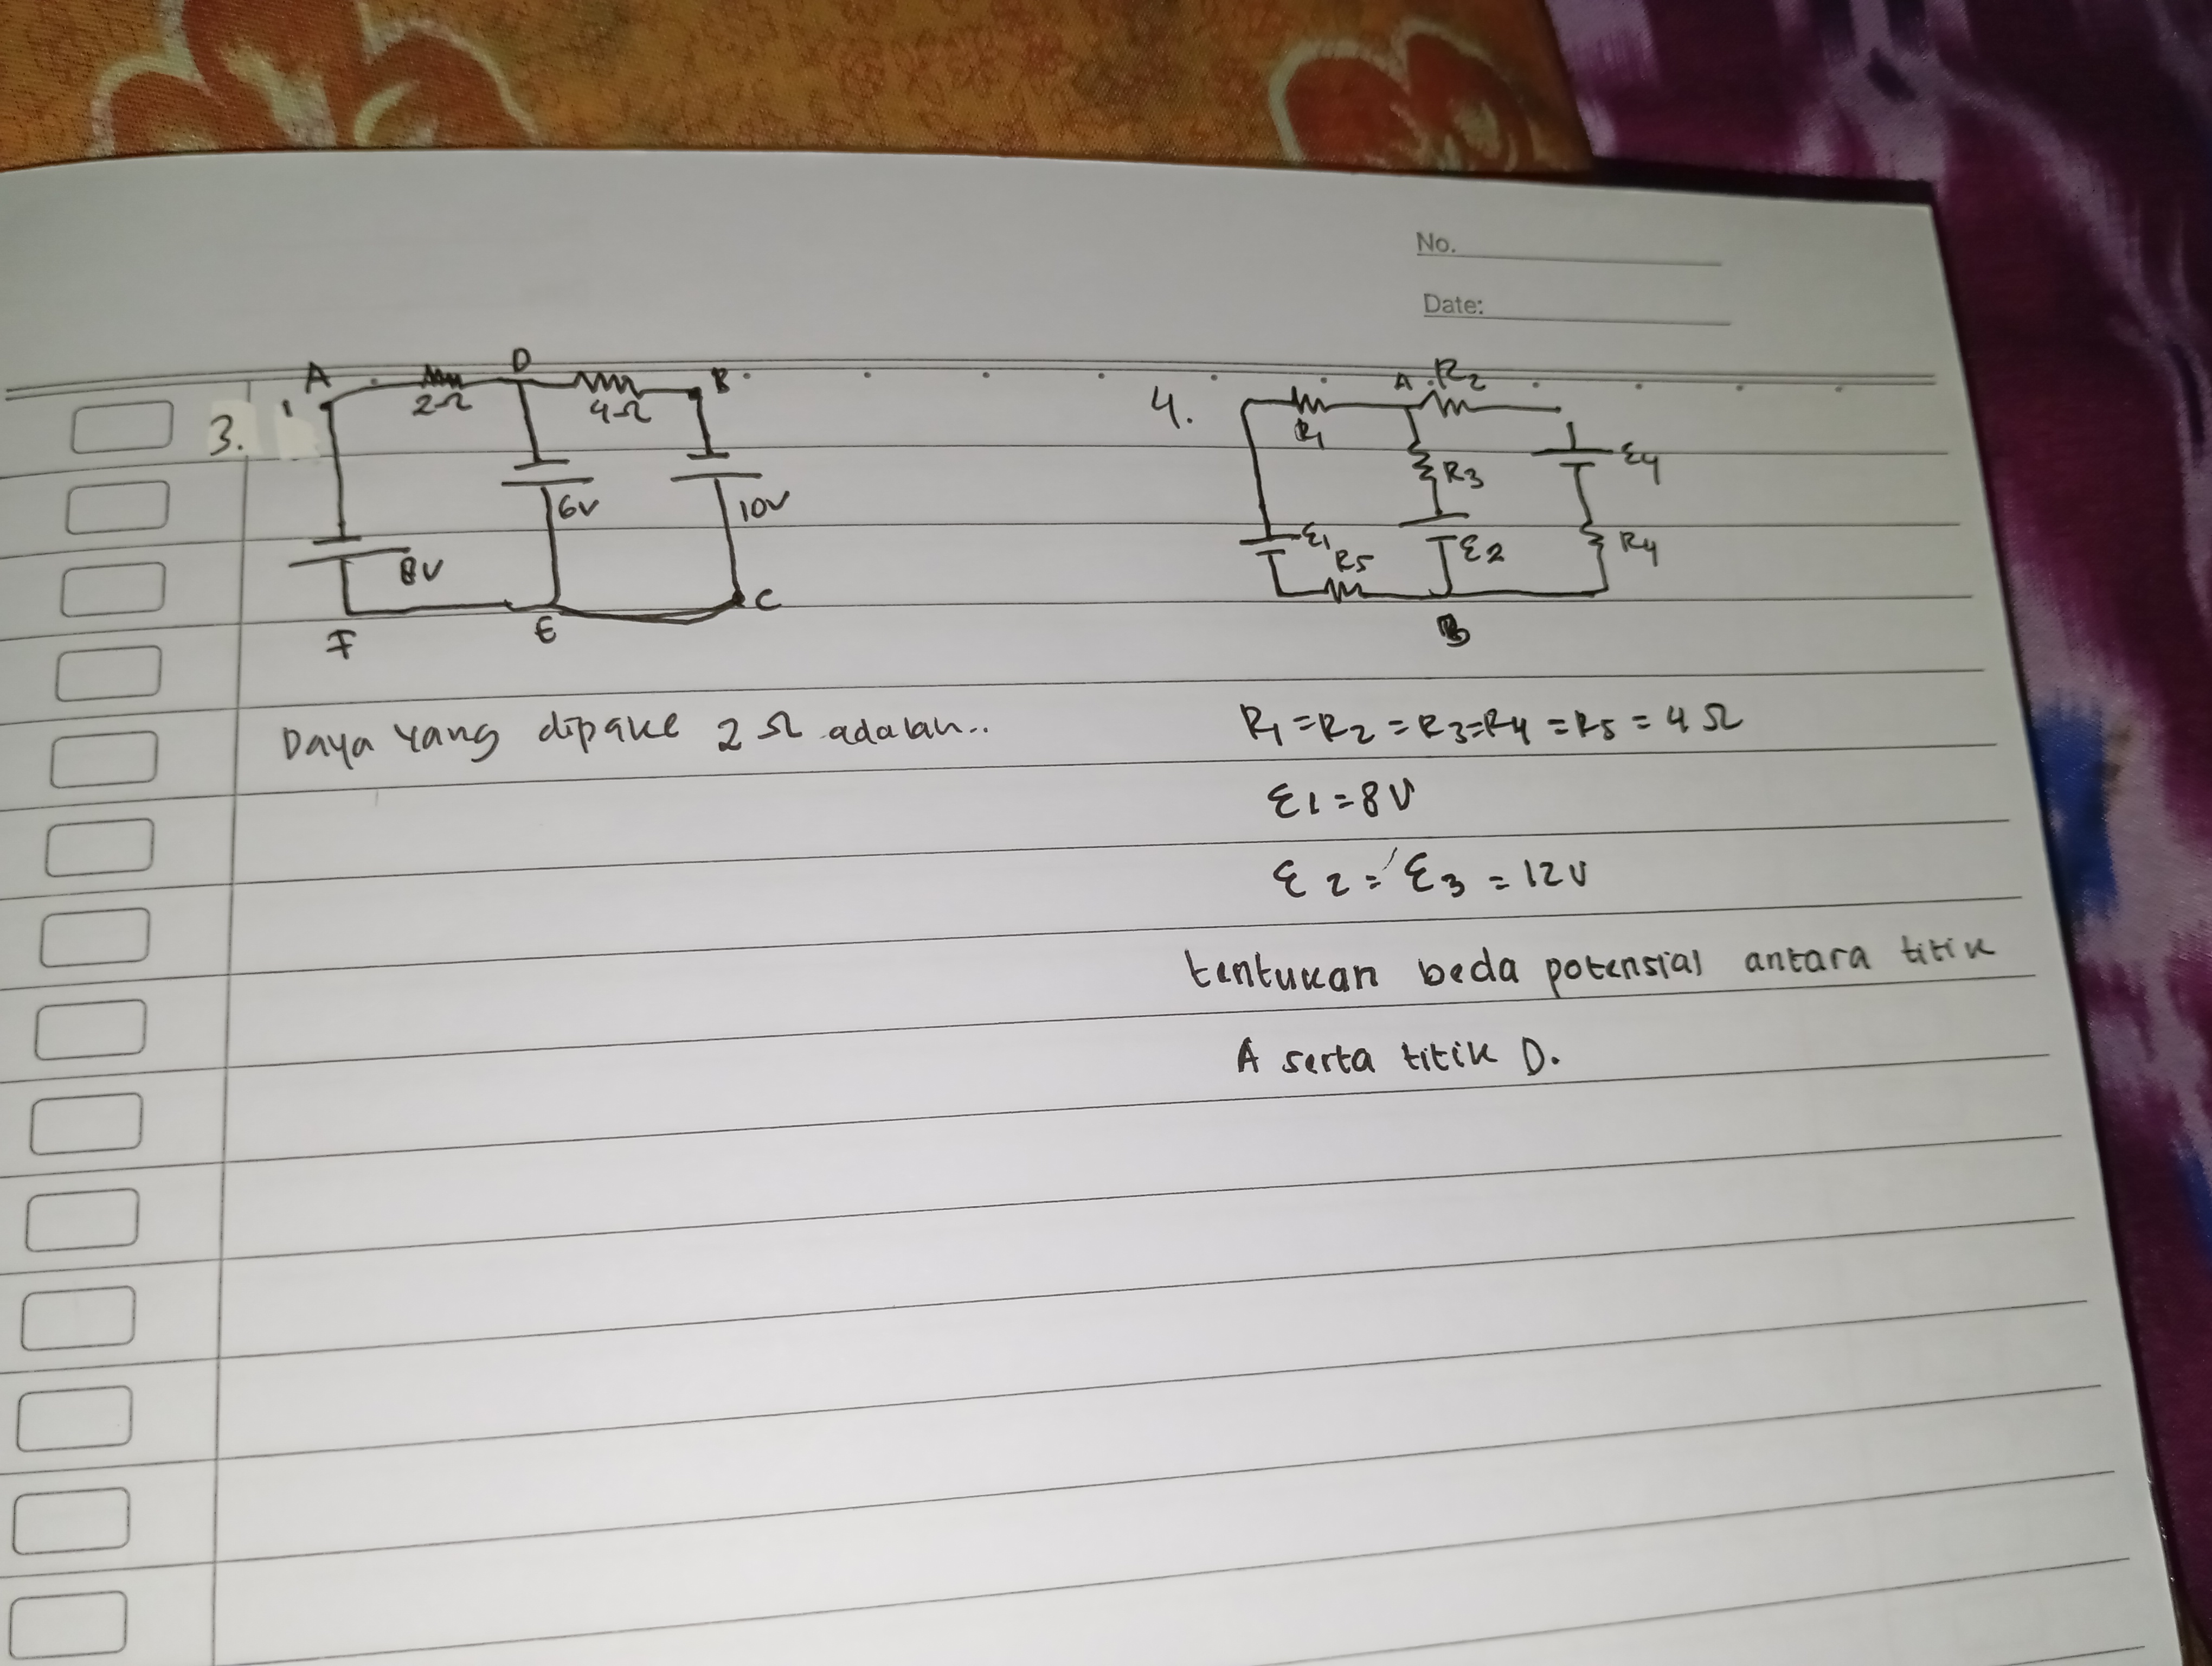 No.
Date:
3.
A
2Ω
D
4Ω
B
8V
6V
10V
F
E
C
Daya yang dipake 2 Ω adalah..
4.
R1
A
R2
R3
ε4
ε1
R5
ε2
R4
B
R1 = R2 = R3 = R4 = R5 = 4 Ω
ε1 = 8 V
ε2 = ε3 = 12 V
tentukan beda potensial antara titik
A serta titik D.